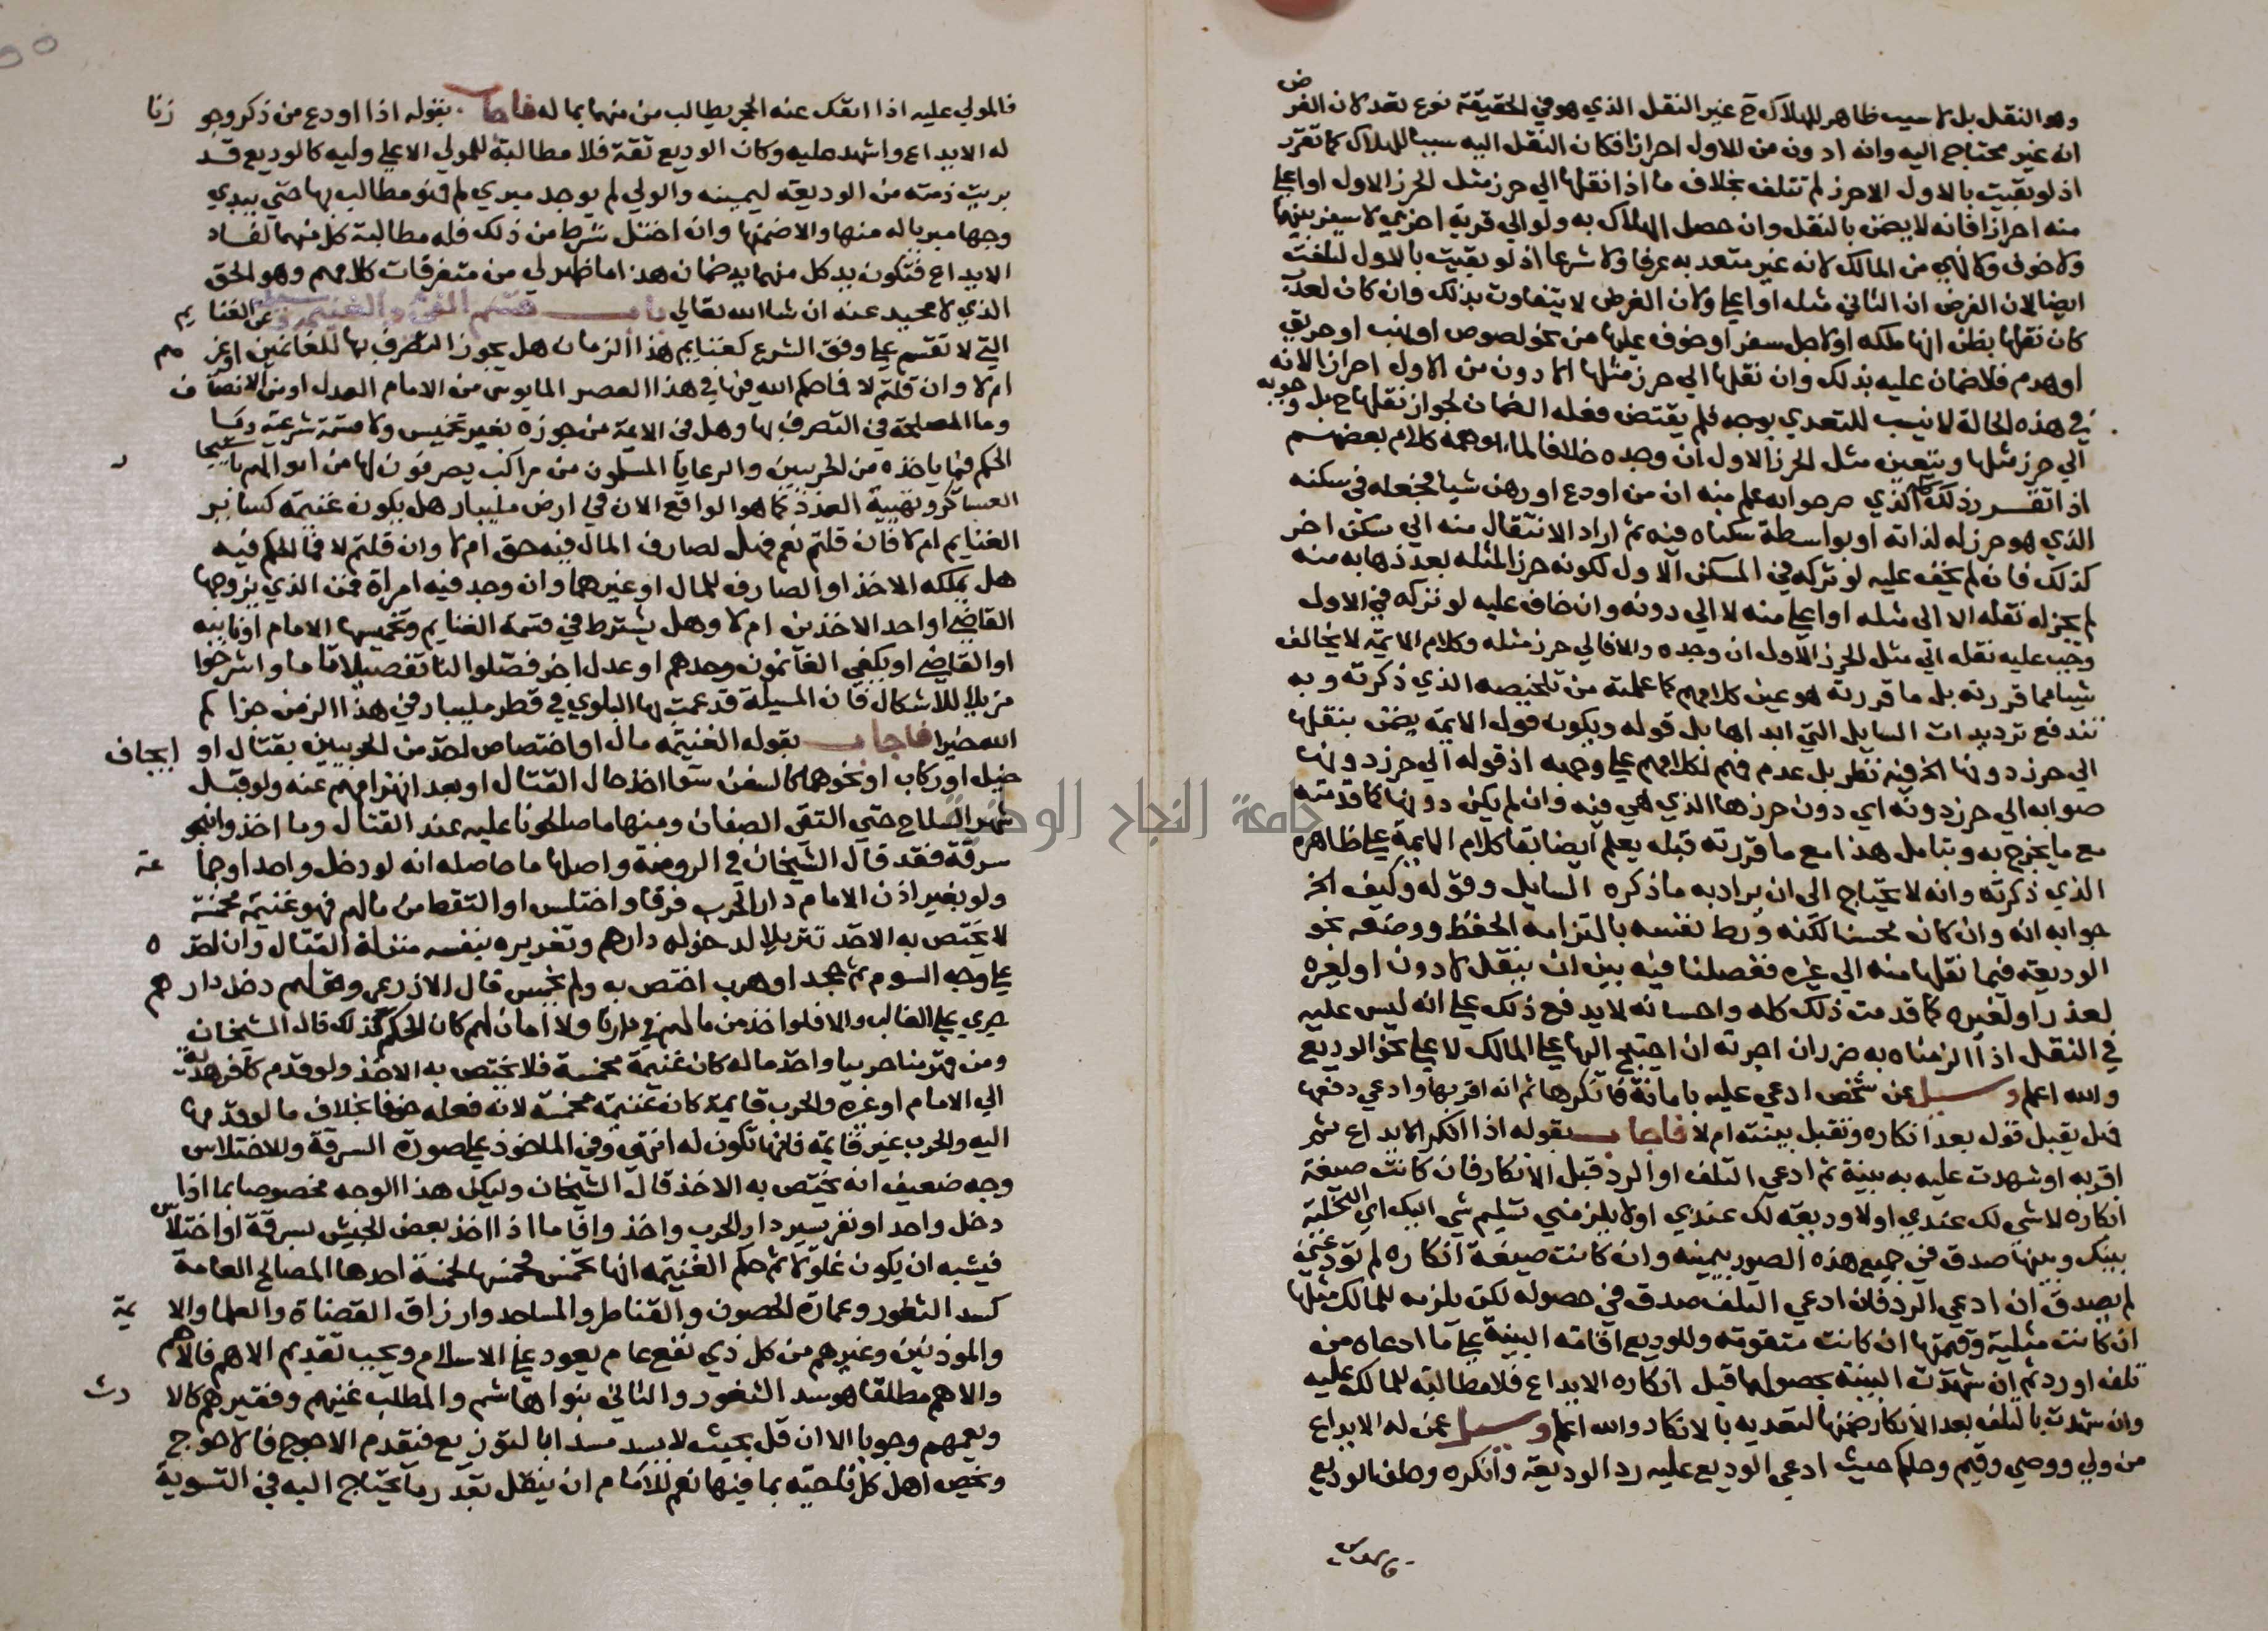 وهو النقل بل لا سبب ظاهر للهلاك ح غير النقل الذي هو في الحقيقة نوع تعد لان الفرض
انه غير محتاج اليه وانه ادون من الاول احرازا فكان النقل اليه سببا للهلاك كما تقرر
اذ لو بقيت بالاول الاحرز لم تتلف بخلاف ما اذا نقلها الي حرز مثل الحرز الاول او اعلي
منه احرازا فانه لا يضمن بالنقل وان حصل الهلاك به ولو الي قرية اخري لا سفر بينهما
ولا خوف ولا نهي من المالك لانه غير متعد به عرفا ولا شرعا اذ لو بقيت بالاول لتلفت
ايضا لان الفرض ان الثاني مثله او اعلي ولان الغرض لا يتفاوت بذلك وان كان لعذر
كان نقلها بظن انها ملكه او لاجل سفر او خوف عليها من نحو لصوص او نهب او حريق
او هدم فلا ضمان عليه بذلك وان نقلها الي حرز مثلها او ادون من الاول احرازا لانه
في هذه الحالة لا ينسب للتعدي بوجه فلم يقتض فعله الضمان لجواز نقلها ح بل وجوبه
الي حرز مثلها ويتعين مثل الحرز الاول ان وجده خلافا لما اوهمه كلام بعضهم
اذا تقرر ذلك الذي صرحوا به علم منه ان من اودع او رهن شيا فجعله في سكنه
الذي هو حرز له لذاته او بواسطة سكناه فيه ثم اراد الانتقال منه الي سكن اخر
كذلك فان لم يخف عليه لو تركه في المسكن الاول لكونه حرزا لمثله بعد ذهابه منه
لم يجز له نقله الا الى مثله او اعلي منه لا الي دونه وان خاف عليه لو تركه في الاول
وجب عليه نقله الي مثل الحرز الاول ان وجده والا فالي حرز مثله وكلام الايمة لا يخالف
شيا مما قررته بل ما قررته هو عين كلامهم كما علمته من تلخيصه الذي ذكرته وبه
تندفع ترديدات السايل التي ابداها بل قوله ويكون قول الايمة يضمن بنقلها
الي حرز دونها الخ فيه نظر بل عدم فهم لكلامهم علي وجهه اذ قوله الي حرز دونها
صوابه الي حرز دونه اي دون حرزها الذي هي فيه وان لم يكن دونها كما قدمته
مع ما يخرج به وبتامل هذا مع ما قررته قبله يعلم ايضا بقا كلام الايمة علي ظاهره
الذي ذكرته وانه لا يحتاج الى ان يراد به ما ذكره السايل وقوله وكيف الخ
جوابه انه وان كان محسنا لكنه ورط نفسه بالتزامه الحفظ ووضعه نحو
الوديعة فيما نقلها منه الي غيره ففصلنا فيه بين ان ينقل لادون او لغيره
لعذر او لغيره كما قدمت ذلك كله واحسانه لا يدفع ذلك علي انه ليس عليه
في النقل اذا الزمناه به ضرر ان اجرته ان احتيج اليها علي المالك لا علي نحو الوديع
والله اعلم وسيل عن شخص ادعي عليه بامانة فانكرها ثم انه اقر بها وادعي دفعها
فهل يقبل قول بعد انكاره وتقبل بينته ام لا فاجاب بقوله اذا انكر الايداع ثم
اقر به او شهدت عليه به بينة ثم ادعي التلف او الرد قبل الانكار فان كانت صيغة
انكاره لا شي لك عندي او لا وديعة لك عندي او لا يلزمني تسليم شي اليك اي التخلية
بينك وبينها صدق في جميع هذه الصور بيمينه وان كانت صيغة انكاره لم تودعني
لم يصدق ان ادعي الرد فان ادعي التلف صدق في حصوله لكن يلزمه للمالك مثلها
ان كانت مثلية وقيمتها ان كانت متقومة وللوديع اقامة البينة علي ما ادعاه من
تلف او رد ثم ان شهدت البينة بحصولهما قبل انكاره الايداع فلا مطالبة للمالك عليه
وان شهدت بالتلف بعد الانكار ضمنها لتعديه بالانكار والله اعلم وسيل عمن له الايداع
من ولي ووصي وقيم وحاكم حيث ادعي الوديع عليه رد الوديعة وانكره وحلف الوديع
فالمولي عليه اذا انفك عنه الحجر يطالب من منهما بماله فاجاب بقوله اذا اودع من ذكر وجوزنا
له الايداع واشهد عليه وكان الوديع ثقة فلا مطالبة للمولي الاعلي وليه كالوديع قد
بريت ذمته من الوديعة ليمينه والولي لم يوجد مبري له فهو مطالب بها حتي يبدي
وجها مبريا له منها والا ضمنها وان اختل شرط من ذلك فله مطالبة كل منهما لفساد
الايداع فتكون يد كل منهما يد ضمان هذا ما ظهر لي من متفرقات كلامهم وهو الحق
الذي لا محيد عنه ان شا الله تعالي باب قسم الفي والغنيمة وسيل عن الغنايم
التي لا تقسم علي وفق الشرع كغنايم هذا الزمان هل يجوز التصرف بها للغانمين او غيرهم
ام لا وان قلتم لا فما حكم الله فيها في هذا العصر المايوس من الامام العدل او من الانصاف
وما المصلحة في التصرف بها وهل في الايمة من جوزه بغير تخميس ولا قسمة شرعية وما
الحكم فيما ياخذه من الحربيين والرعايا المسلمون من مراكب يصرفون لها من اموالهم
العساكر وتهيية العدد كما هو الواقع الان في ارض مليبار هل يكون غنيمة كساير
الغنايم ام لا فان قلتم نعم فهل لصارف المال فيه حق ام لا وان قلتم لا فما الحكم فيه
هل يملكه الاخذ او الصارف للمال او غيرهما وان وجد فيه امراة فمن الذي يزوجها
القاضي او احد الاخذين ام لا وهل يشترط في قسمة الغنايم وتخميسها الامام او نايبه
او القاضي او يكفي الغانمون وحدهم او عدل اخر فصلوا لنا تفصيلا تاما واشرحوا
مزيلا للاشكال فان المسيلة قد عمت بها البلوي في قطر مليبار في هذا الزمن جزاكم
الله خيرا فاجاب بقوله الغنيمة مال او اختصاص اخذ من الحربيين بقتال او ايجاف
خيل او ركاب او نحوهما كالسفن سوا اخذ حال القتال او بعد انهزامهم عنه ولو قبل
شهر السلاح حتي التقي الصفان ومنها ما صالحونا عليه عند القتال وما اخذ وانحو
سرقة فقد قال الشيخان في الروضة واصلها ما حاصله انه لو دخل واحد او جماعة
ولو بغير اذن الامام دار الحرب فرقا واختلس او التقط من مالهم فهو غنيمة مخمسة
لا يختص به الاخذ تنزيلا لدخوله دارهم وتغريره بنفسه منزلة القتال وان اخذه
علي وجه السوم ثم جحد او هرب اختص به ولم يخمس قال الاذرعي وقولهم دخل دارهم
جري علي الغالب والا فلو اخذ من مالهم في دارنا ولا امان لهم كان الحكم كذلك قال الشيخان
ومن قهر منا حربيا واخذ ماله كان غنيمة مخمسة فلا يختص به الاخذ ولو قدم كافر هدية
الي الامام او غيره والحرب قايمة كان غنيمة مخمسة لانه فعله خوفا بخلاف ما لو قدمها
اليه والحرب غير قايمة فانها تكون له انتهي وفي الماخوذ علي صورة السرقة والاختلاس
وجه ضعيف انه يختص به الاخذ قال الشيخان وليكن هذا الوجه مخصوصا بما اذا
دخل واحد او نفر يسير دار الحرب واخذ واما اذا اخذ بعض الجيش بسرقة او اختلاس
فيشبه ان يكون غلولا ثم حكم الغنيمة انها تخمس فخمسها لخمسة احدها المصالح العامة
كسد الثغور وعمارة الحصون والقناطر والمساجد وارزاق القضاة والعلما والايمة
والموذنين وغيرهم من كل ذي نفع عام يعود علي الاسلام ويجب تقديم الاهم فالاهم
والاهم مطلقا هو سد الثغور والثاني بنوا هاشم والمطلب غنيهم وفقيرهم كالارث
ويعمهم وجوبا الا ان قل بحيث لا يسد مسدا بالتوزيع فيقدم الاحوج فالاحوج
ويخص اهل كل ناحية بما فيها نعم للامام ان ينقل بقدر ما يحتاج اليه في التسوية
جامعة النجاح الوطنية